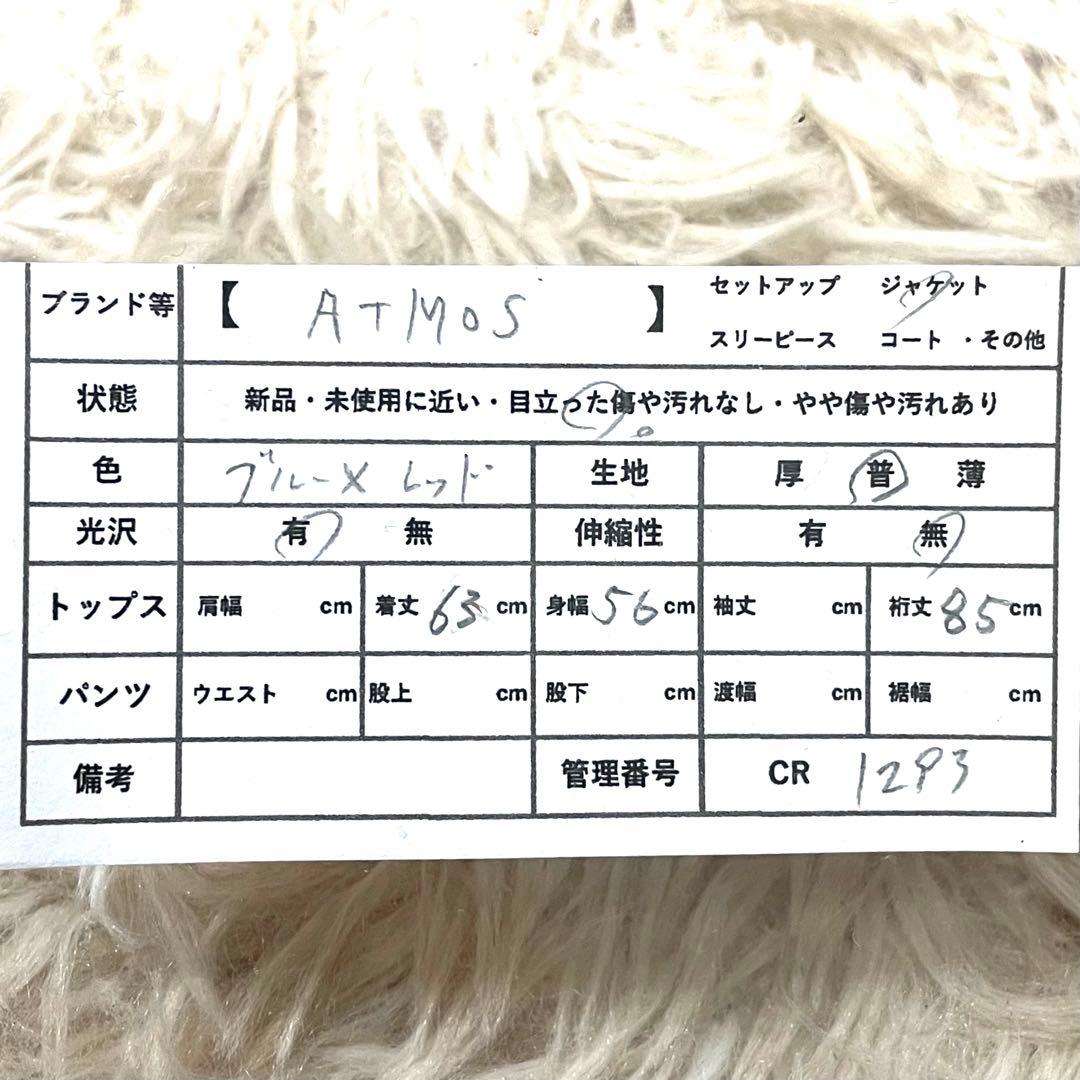 ブランド等 【 ATMOS 】 セットアップ ジャケット
スリーピース コート ・その他
状態 新品・未使用に近い・目立った傷や汚れなし・やや傷や汚れあり
色 ブルー×レッド 生地 厚 普 薄
光沢 有 無 伸縮性 有 無
トップス 肩幅 cm 着丈 63 cm 身幅 56 cm 袖丈 cm 裄丈 85 cm
パンツ ウエスト cm 股上 cm 股下 cm 渡幅 cm 裾幅 cm
備考 管理番号 CR 1293